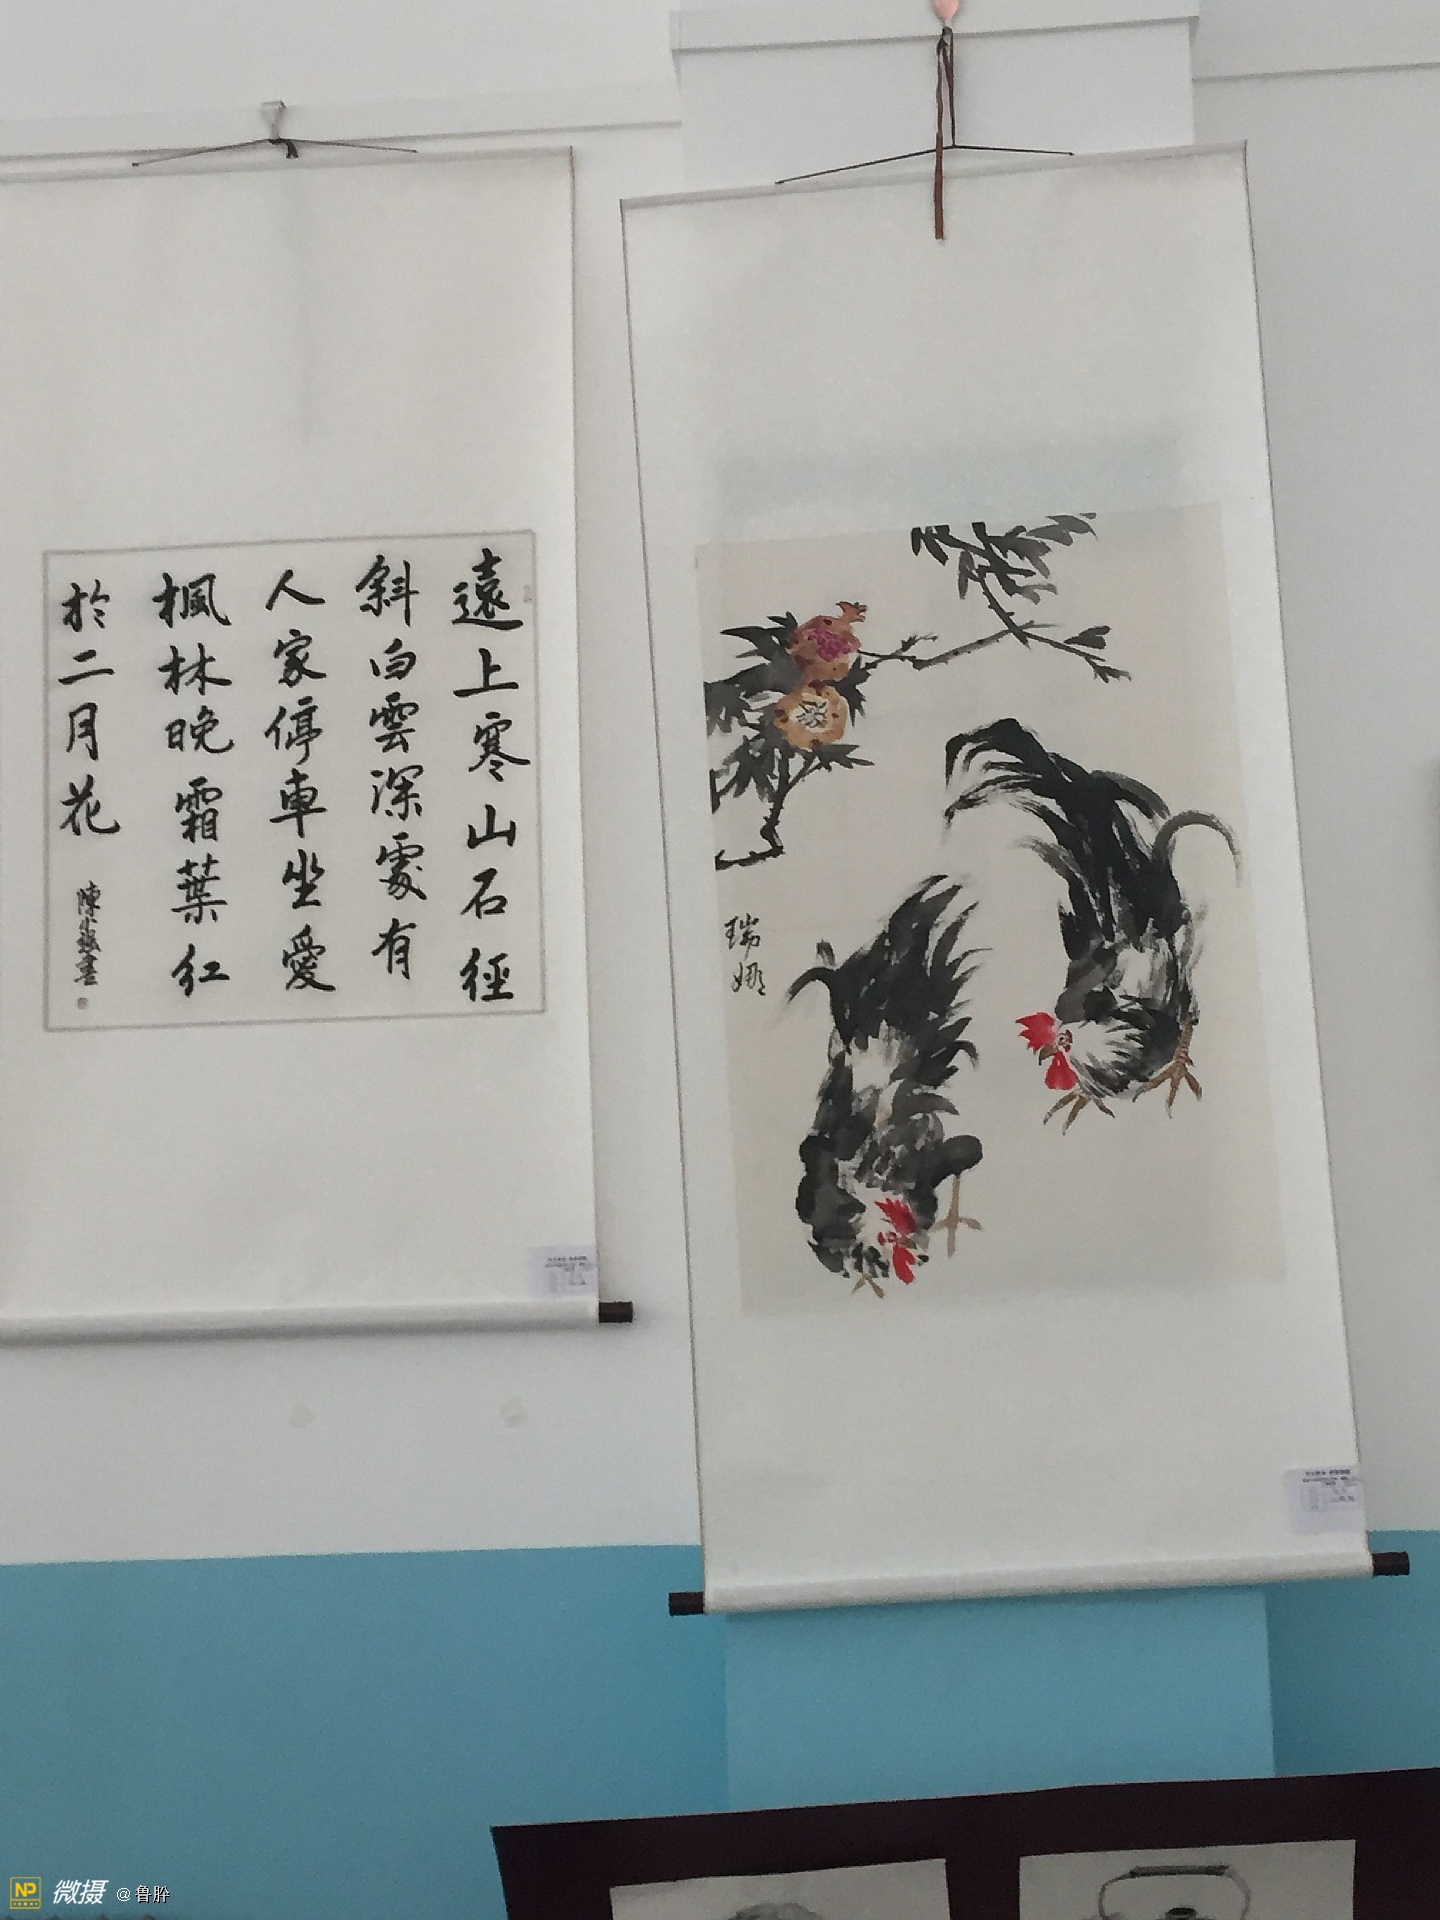 遠上寒山石徑
斜白雲深處有
人家停車坐愛
楓林晚霜葉紅
於二月花
瑞娜
NP 微摄 @鲁胙